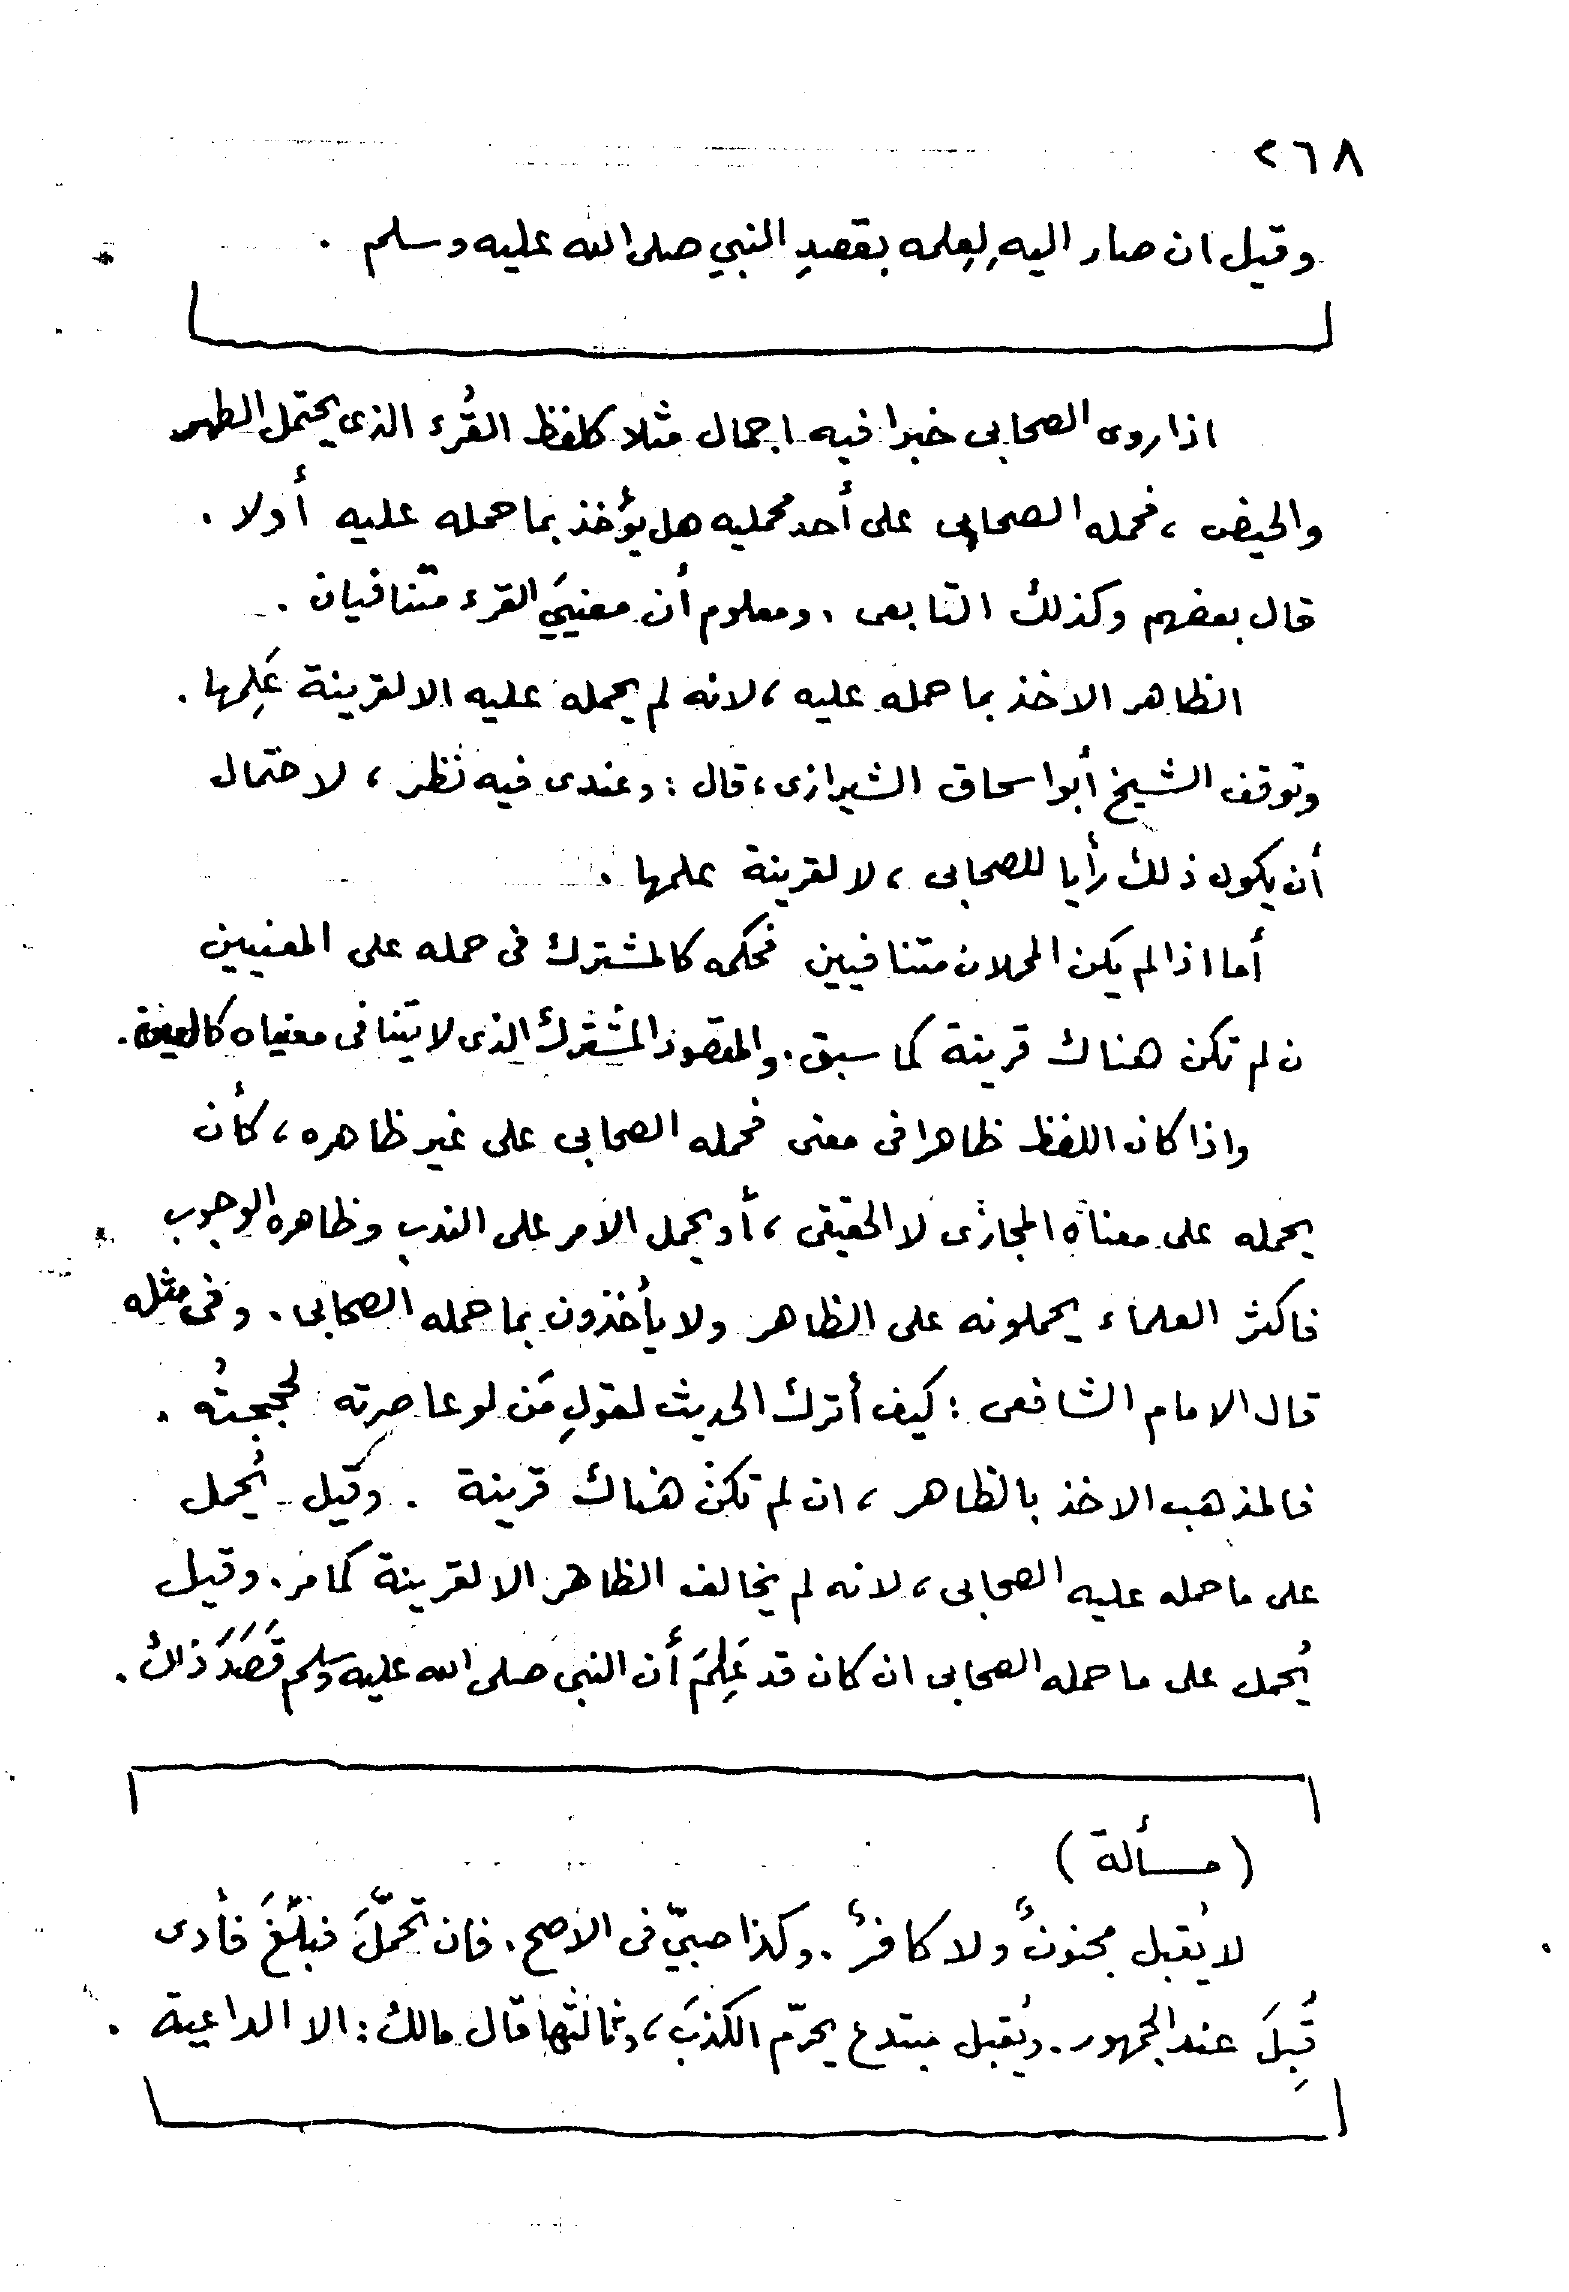 ٢٦٨
وقيل ان صار اليه لِعِلمه بقصدِ النبي صلى الله عليه وسلم .
اذا روى الصحابى خبرا فيه اجمال مثلا كلفظ القُرء الذى يحتمل الطهر
والحيض ، فحمله الصحابى على أحد محمليه هل يؤخذ بما حمله عليه أولا .
قال بعضهم وكذلك التابعى . ومعلوم أن معنيَي القرء متنافيان .
الظاهر الاخذ بما حمله عليه ، لانه لم يحمله عليه الا لقرينة عَلِمها .
وتوقف الشيخ أبو اسحاق الشيرازى ، قال : وعندى فيه نظر ، لاحتمال
أن يكون ذلك رأيا للصحابى ، لا لقرينة علمها .
أما اذا لم يكن المحملان متنافيين فحكمه كالمشترك فى حمله على المعنيين
ن لم تكن هناك قرينة كما سبق . والمقصود المشترك الذى لا يتنافى معنياه كالعين .
واذا كان اللفظ ظاهرا فى معنى فحمله الصحابى على غير ظاهره ، كأن
يحمله على معناه المجازى لا الحقيقى ، أو يحمل الامر على الندب وظاهره الوجوب
فاكثر العلماء يحملونه على الظاهر ولا يأخذون بما حمله الصحابى . وفى مثله
قال الامام الشافعى : كيف أترك الحديث لقولِ مَن لو عاصرته لحججتُه .
فالمذهب الاخذ بالظاهر ، ان لم تكن هناك قرينة . وقيل يُحمل
على ما حمله عليه الصحابى ، لانه لم يخالف الظاهر الا لقرينة كما مر . وقيل
يُحمل على ما حمله الصحابى ان كان قد عَلِمَ أن النبى صلى الله عليه وسلم قَصَدَ ذاك .
( مسألة )
لا يُقبل مجنونٌ ولا كافرٌ . وكذا صبيّ فى الاصح . فان تحمَّلَ فبلَغَ فأدى
قُبِلَ عند الجمهور . ويُقبل مبتدع يحرّم الكذبَ ، وثالثها قال مالك : الا الداعية .